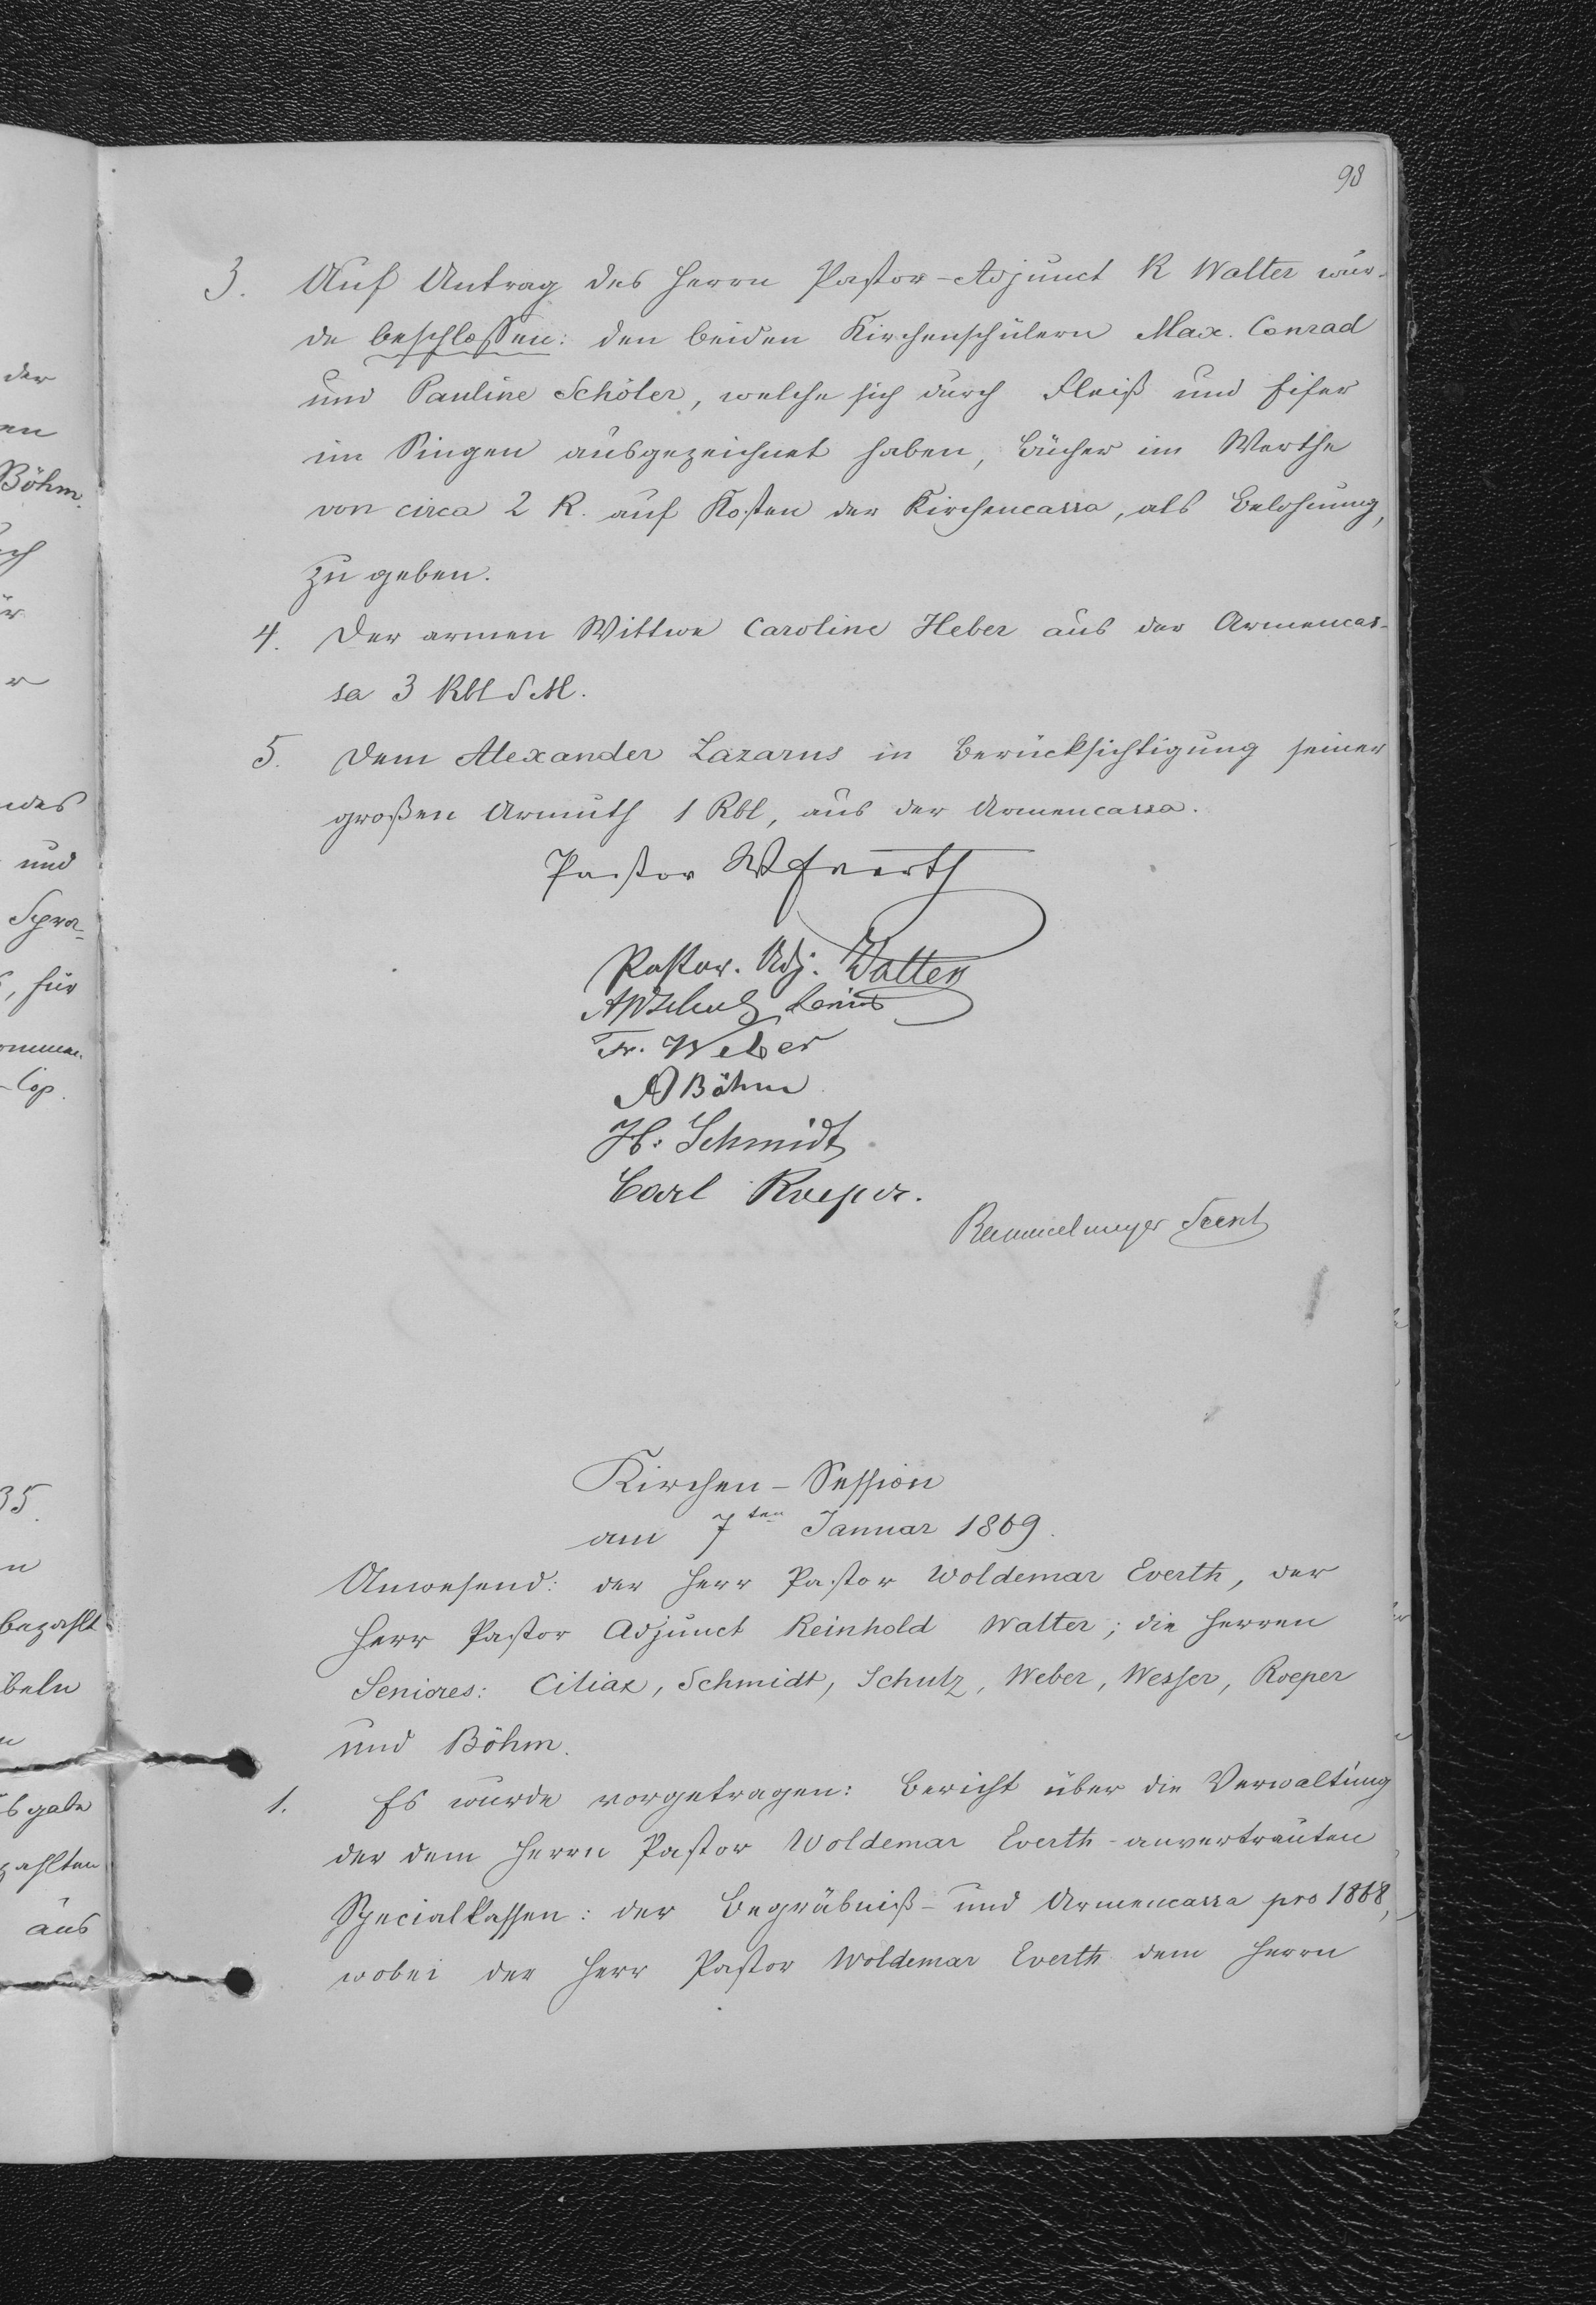 98
3. Auf Antrag des Herrn Pastor-Adjunct R Walter wur-
de beschlossen: den beiden Kirchenschülern Max. Conrad
und Pauline Schöler, welche sich durch Fleiß und Eifer
im Singen ausgezeichnet haben, Bücher im Werthe
von circa 2 R. auf Kosten der Kirchencassa, als Belohnung,
zu geben.
4. Der armen Wittwe Caroline Heber aus der Armencas-
sa 3 Rbl S M.
5. Dem Alexander Lazarus in Berücksichtigung seiner
großen Armuth 1 Rbl, aus der Armencassa.
Pastor W Everth
Pastor. Adj. Walter
Fr. Weber
A Böhm
H. Schmidt
Carl Roeper.
Kirchen-Session
am 7ten Januar 1869.
Anwesend: der Herr Pastor Woldemar Everth, der
Herr Pastor Adjunct Reinhold Walter; die Herren
Seniores: Ciliax, Schmidt, Schulz, Weber, Wesser, Roeper
und Böhm.
1. Es wurde vorgetragen: Bericht über die Verwaltung
der dem Herrn Pastor Woldemar Everth anvertrauten
Specialkassen: der Begräbniß- und Armencassa pro 1868,
wobei der Herr Pastor Woldemar Everth dem Herrn